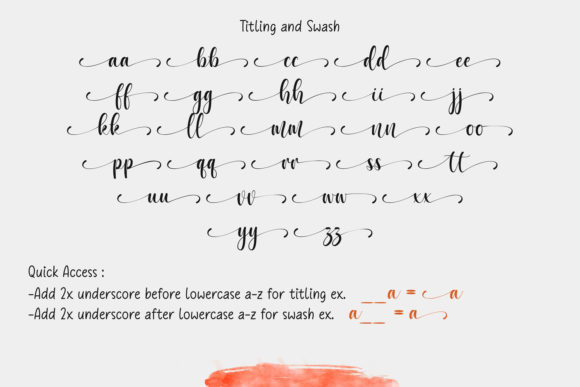 Titling and Swash
aa bb cc dd ee
ff gg hh ii jj
kk ll mm nn oo
pp qq rr ss tt
uu vv ww xx
yy zz
Quick Access :
-Add 2x underscore before lowercase a-z for titling ex. __a = a
-Add 2x underscore after lowercase a-z for swash ex. a__ = a